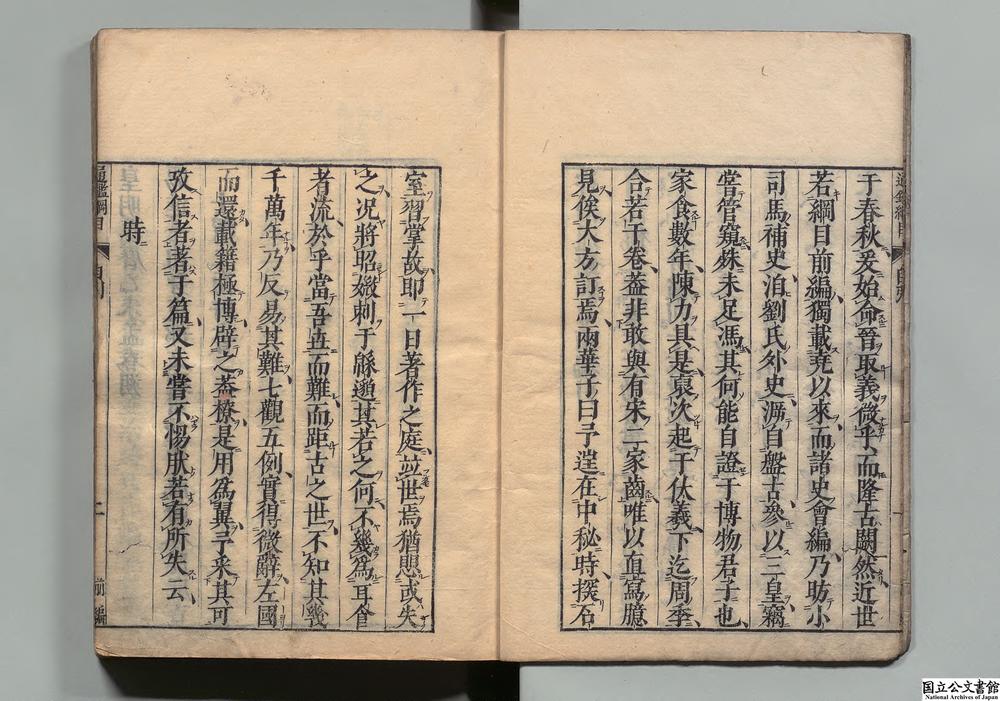 于春秋爰始命晉取義微乎而隆古闕然近世
若綱目前編獨載堯以來而諸史會編乃昉小
司馬補史洎劉氏外史遡自盤古參以三皇竊
嘗管窺殊未足馮其何能自證于博物君子也
家食數年陳力具是裒次起于伏羲下迄周季
合若干卷葢非敢與有宋二家齒唯以直寫臆
見俟大方訂焉兩華子曰予逞在中秘時探石
室習掌故即一日著作之庭竝世焉猶惧或失
之况將昭媺刺于緜邈其若之何不幾爲耳食
者流於乎當吾世而難而距古之世不知其幾
千萬年乃反易其難七觀五例實得微辭左國
而還載籍極博辟之葢橑是用爲翼予采其可
攷信者著于篇又未嘗不惕肰若有所失云
時
通鑑綱目
自序
二
前編
国立公文書館
National Archives of Japan